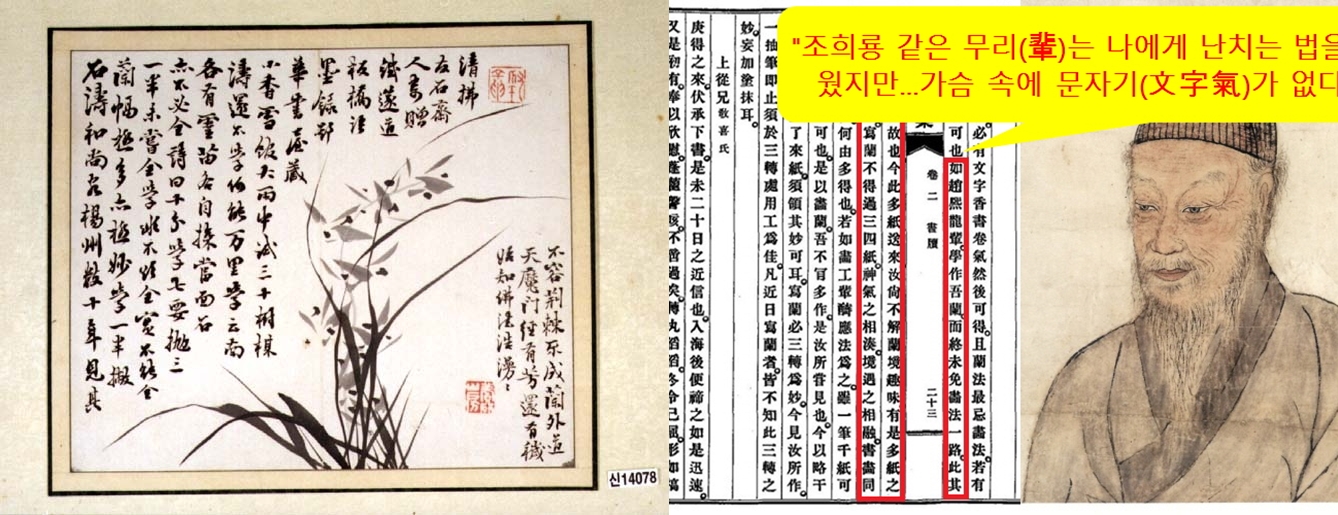 石濤和尚客楊州數十年見其
蘭幅極多亦極妙學一半撇
一半未嘗全學非不欲全實不能全
亦不必全詩曰十分學七要抛三
各有靈苗各自探當面石
濤還不學何能万里學云南
小香雪飯大雨中滅三十樹棋
華書屋藏
墨緣邨
板橋法
鐵篴道
人寫贈
友石齋
清拂
不容荊棘不成蘭外道
天魔門徑有芳還有穢
始知佛法浩漫〻
신14078
"조희룡 같은 무리(輩)는 나에게 난치는 법을
웠지만...가슴 속에 문자기(文字氣)가 없다
必有文字香書卷氣然後可得。且蘭法最忌畫法。若有
可也。如趙熙龍輩學作吾蘭。而終未免畫法一路。此其
卷二 書牘 二十三
故也。今此多紙送來。汝尙不解蘭境趣味。有是多紙之
寫蘭不得過三四紙。神氣之相湊。境遇之相融。書畫同
何由多得也。若如畫工輩醻應法爲之。雖一筆千紙可
可也。是以畫蘭。吾不肯多作。是汝所嘗見也。今以略干
了來紙。須領其妙可耳。寫蘭必三轉爲妙。今見汝所作。
一抽筆即止。須於三轉處用工爲佳。凡近日寫蘭者。皆不知此三轉之
妙。妄加塗抹耳。
上從兄 敎喜氏
庚得之來。伏承下書。是未二十日之近信也。入海後便稀之如是迅速。